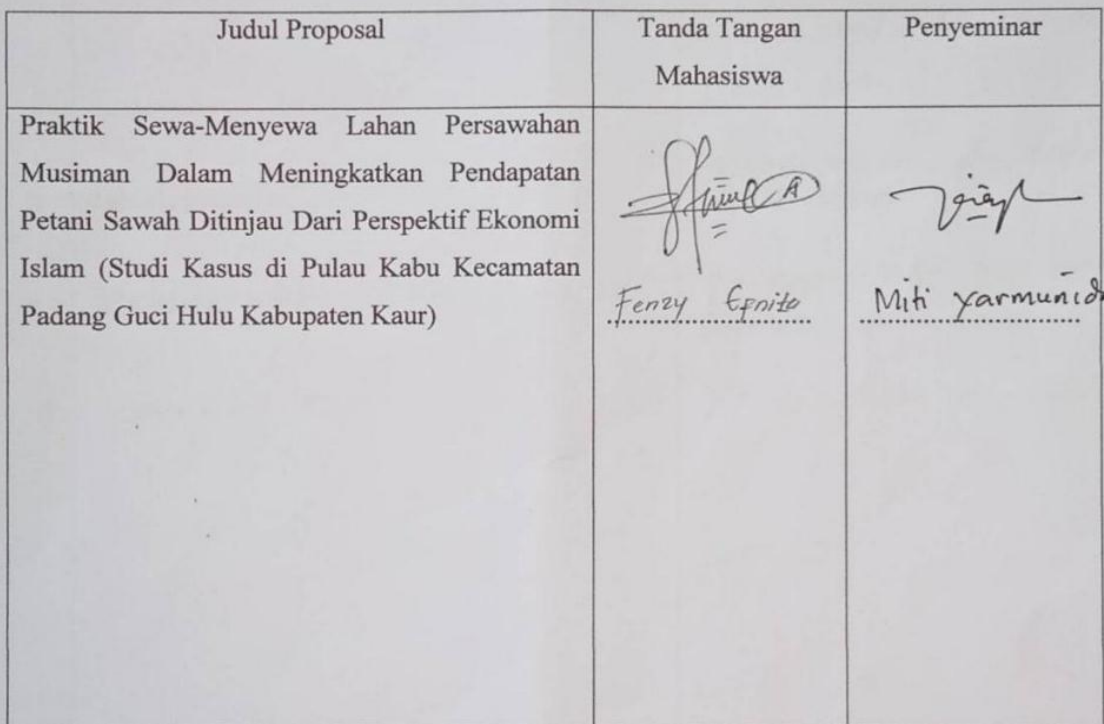 Judul Proposal
Tanda Tangan
Mahasiswa
Penyeminar
Praktik Sewa-Menyewa Lahan Persawahan
Musiman Dalam Meningkatkan Pendapatan
Petani Sawah Ditinjau Dari Perspektif Ekonomi
Islam (Studi Kasus di Pulau Kabu Kecamatan
Padang Guci Hulu Kabupaten Kaur)
Fenzy
Miti Yarmunida